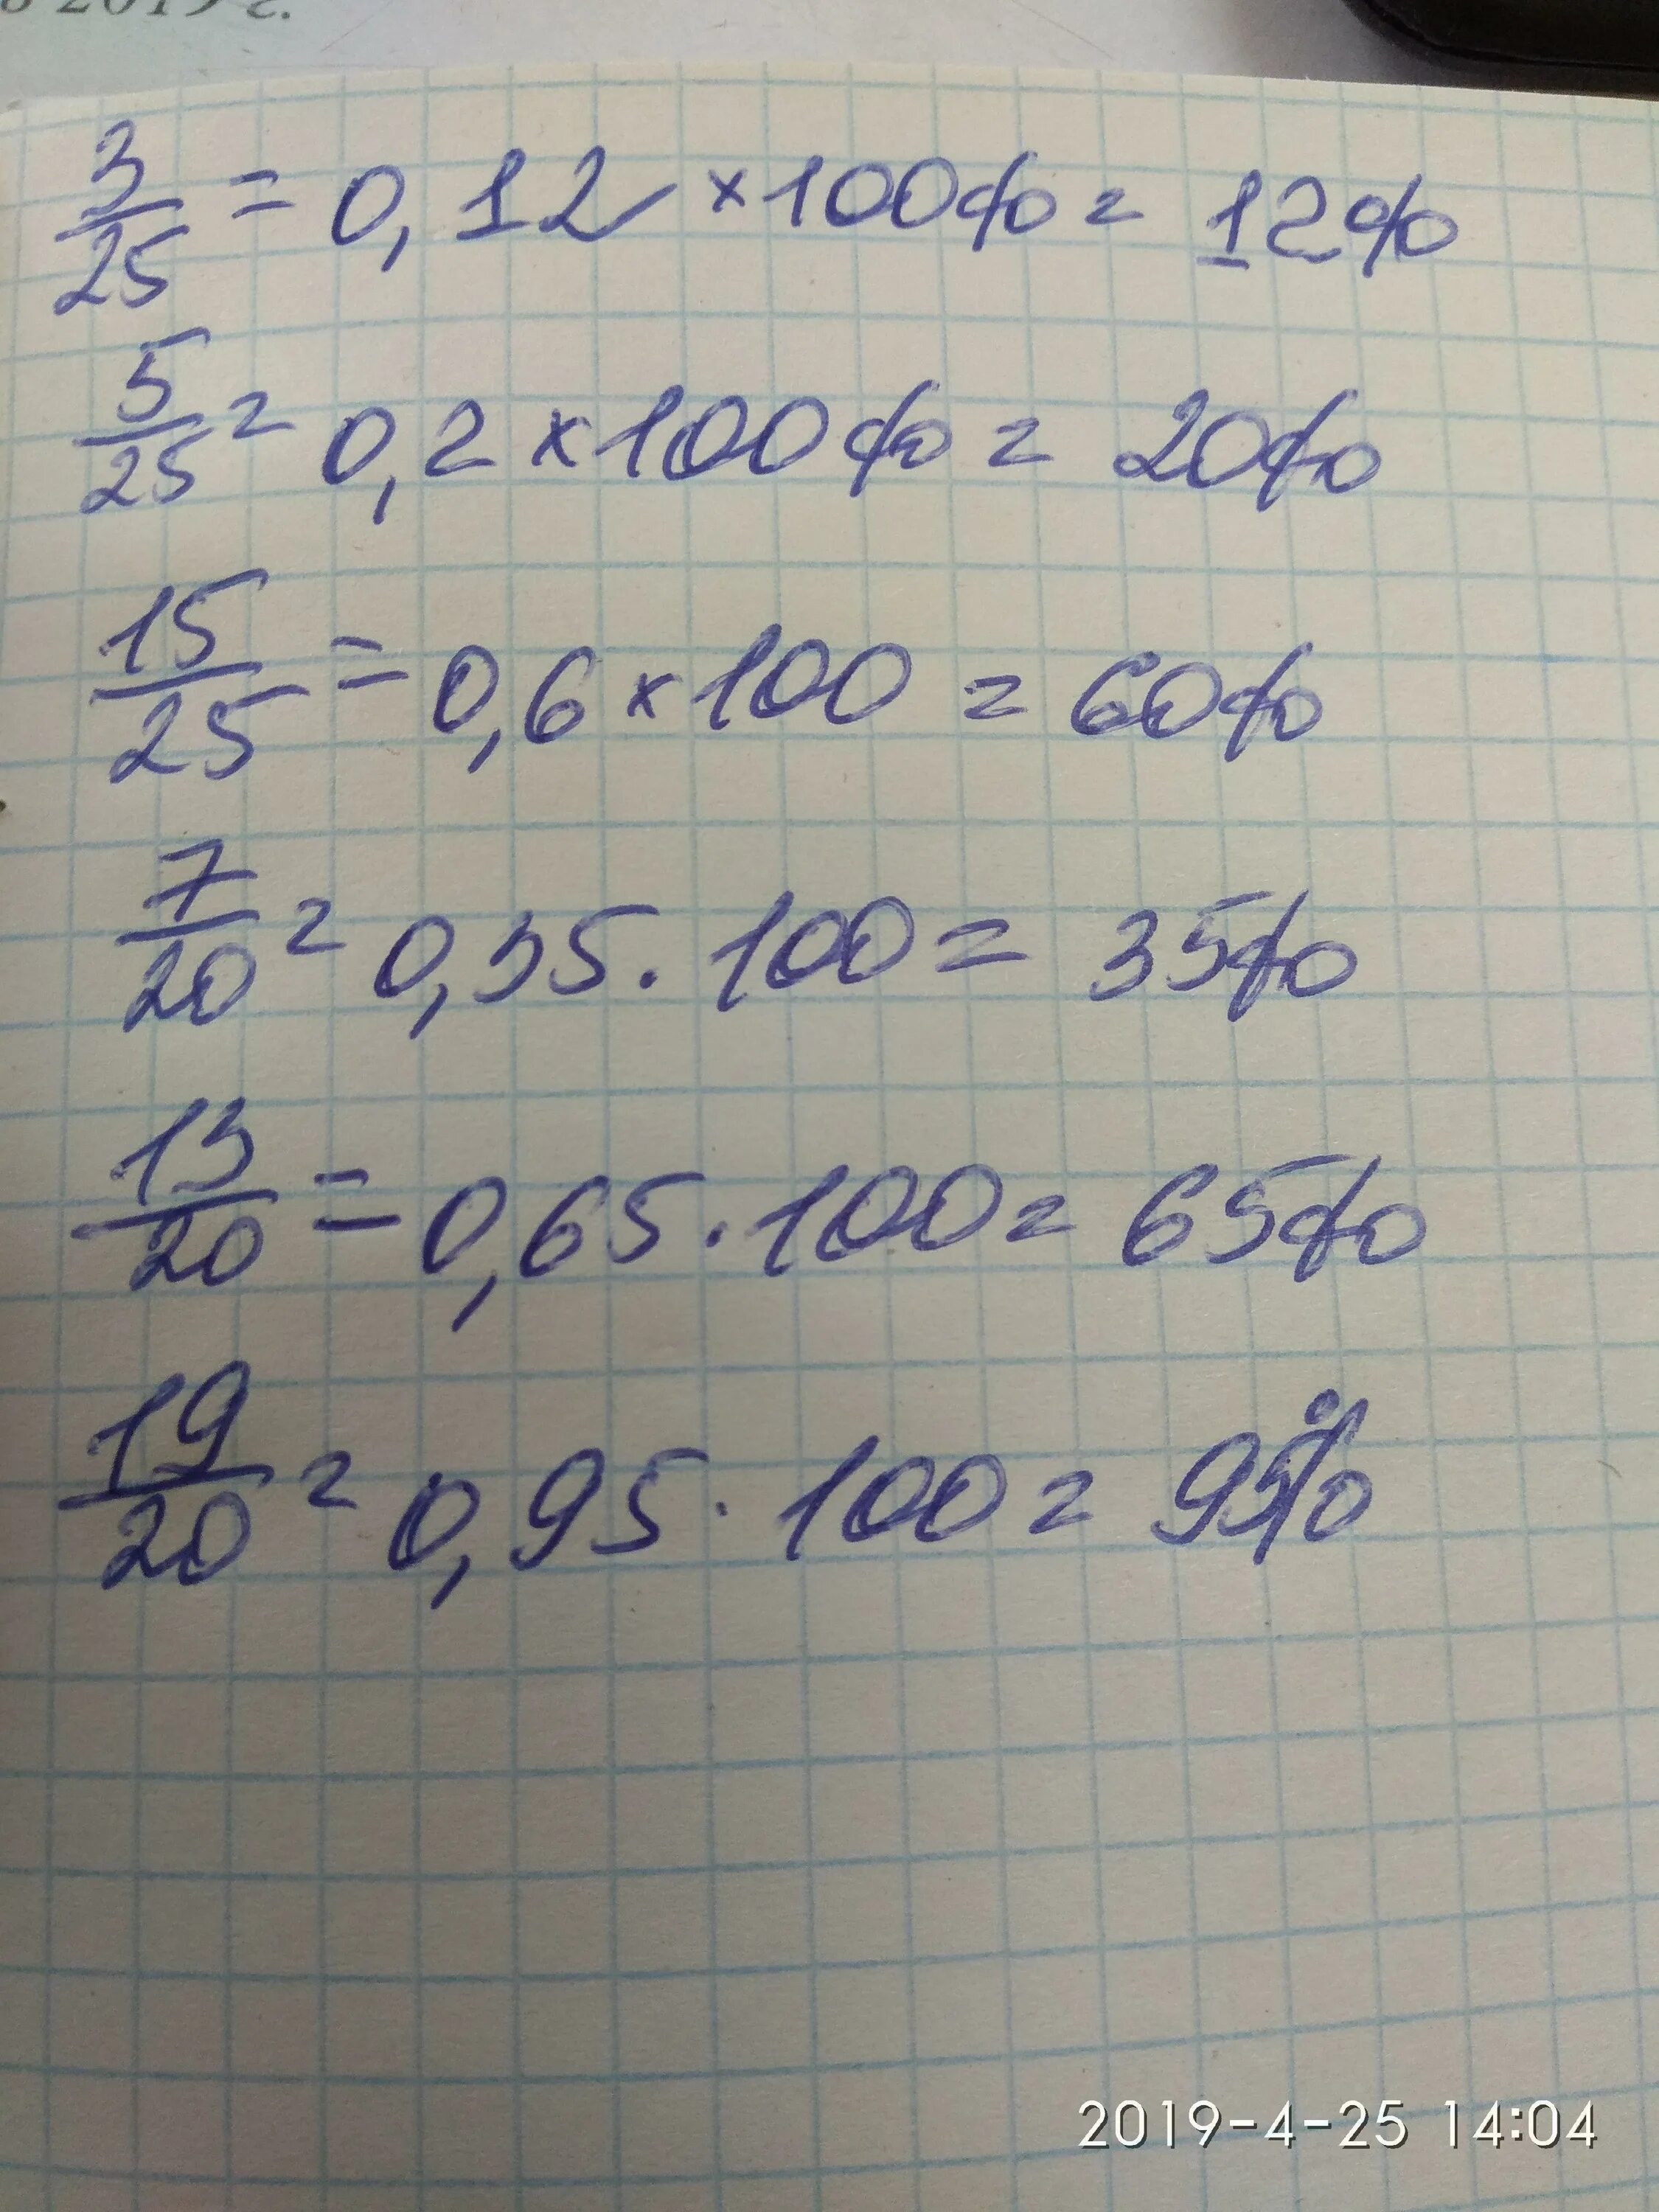 2019 г.
3/25 = 0,12 × 100% = 12%
5/25 = 0,2 × 100% = 20%
15/25 = 0,6 × 100 = 60%
7/20 = 0,35 · 100 = 35%
13/20 = 0,65 · 100 = 65%
19/20 = 0,95 · 100 = 95%
2019-4-25 14:04